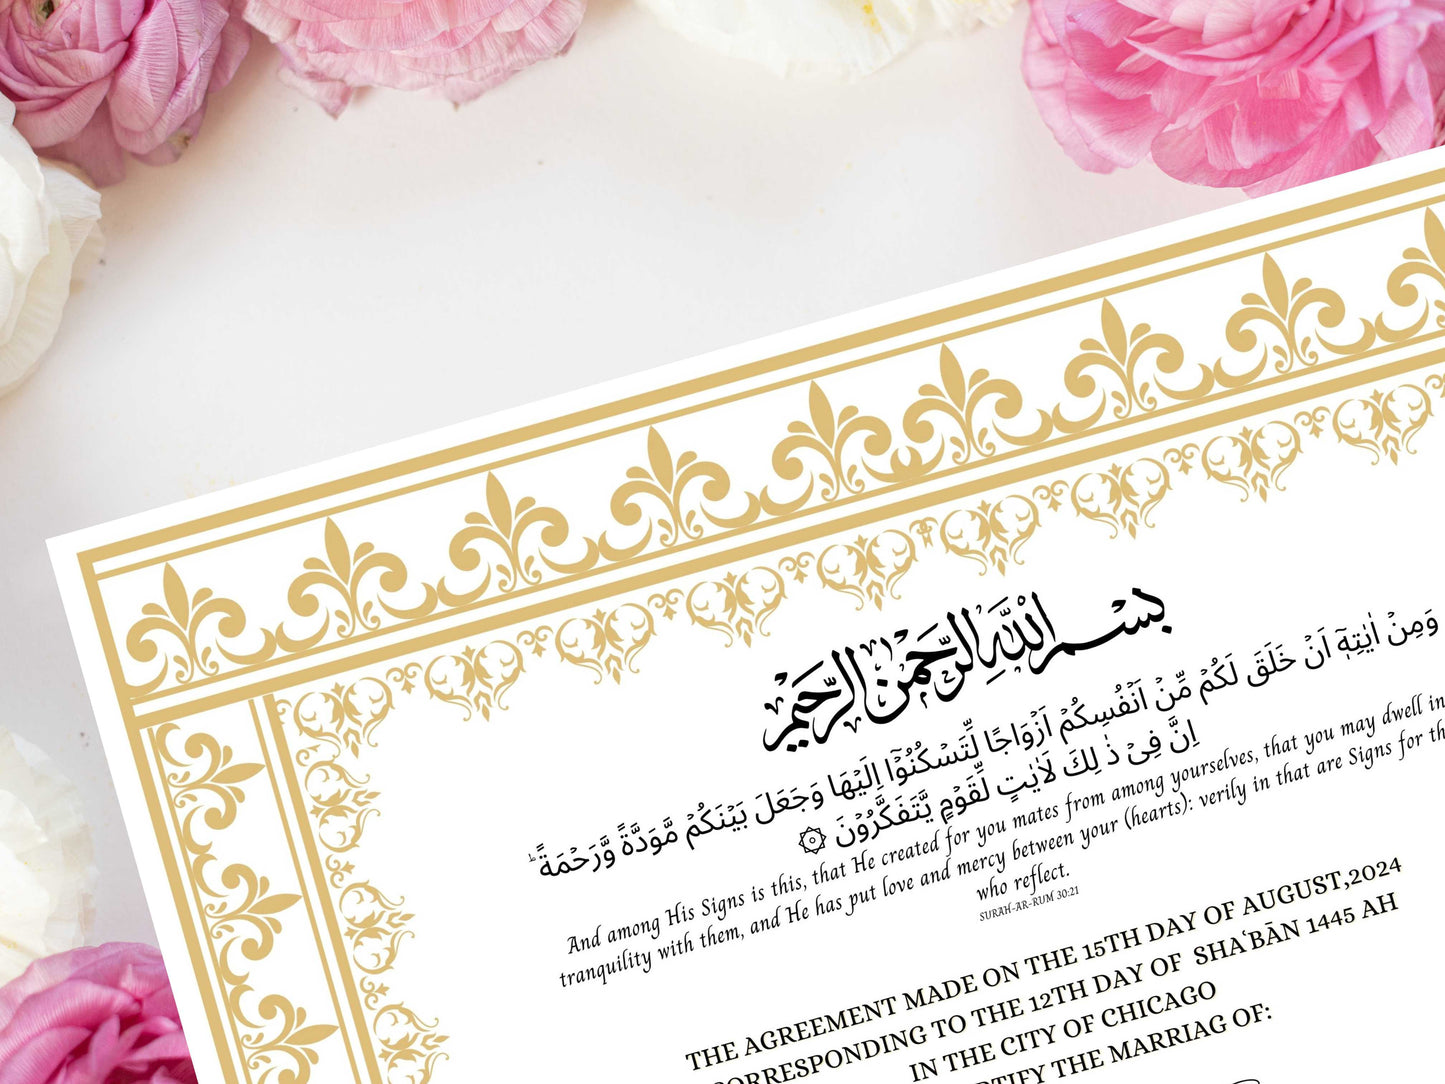 بِسْمِ اللَّهِ الرَّحْمَٰنِ الرَّحِيمِ
وَمِنْ اٰيٰتِهٖٓ اَنْ خَلَقَ لَكُمْ مِّنْ اَنْفُسِكُمْ اَزْوَاجًا لِّتَسْكُنُوْٓا اِلَيْهَا وَجَعَلَ بَيْنَكُمْ مَّوَدَّةً وَّرَحْمَةً ؕ
اِنَّ فِيْ ذٰ لِكَ لَاٰيٰتٍ لِّقَوْمٍ يَّتَفَكَّرُوْنَ ۞
And among His Signs is this, that He created for you mates from among yourselves, that you may dwell in
tranquility with them, and He has put love and mercy between your (hearts): verily in that are Signs for
who reflect.
SURAH-AR-RUM 30:21
THE AGREEMENT MADE ON THE 15TH DAY OF AUGUST,2024
CORRESPONDING TO THE 12TH DAY OF SHAʿBĀN 1445 AH
IN THE CITY OF CHICAGO
THE MARRIAG OF: